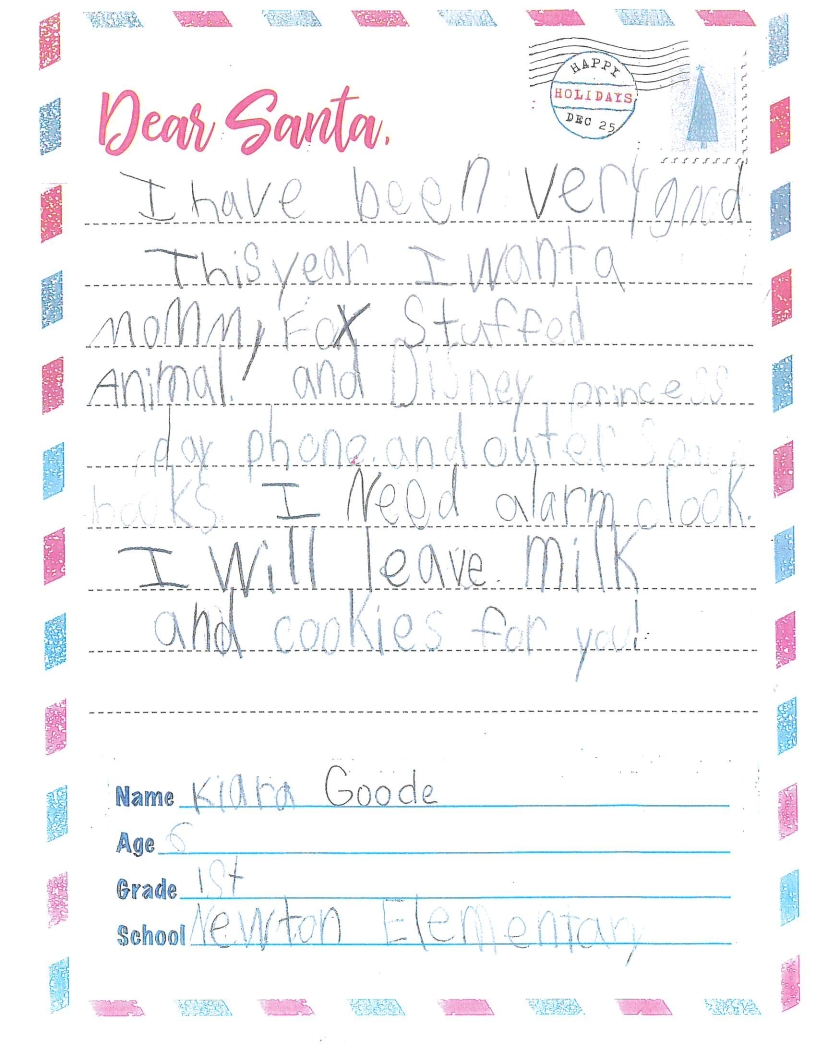 HAPPY
HOLIDAYS
DEC 25
Dear Santa,
I have been very good
This year I want a
Mommy Fox Stuffed
Animal. and Disney princess
phone. and outer
books. I Need alarm clook.
I Will leave. milk
and cookies for you!
Name Kiara Goode
Age 6
Grade 1st
School Newton Elementary